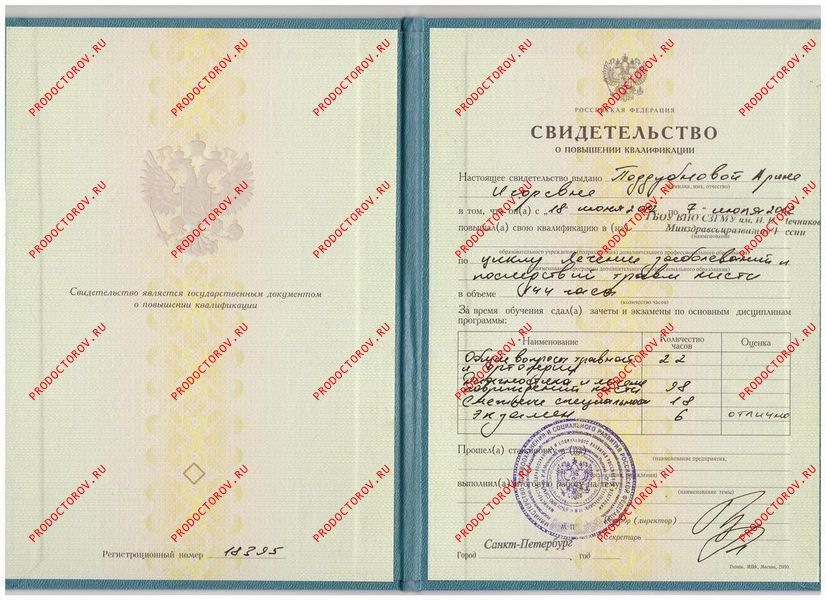 Свидетельство является государственным документом
о повышении квалификации
Регистрационный номер 18395
РОССИЙСКАЯ ФЕДЕРАЦИЯ
СВИДЕТЕЛЬСТВО
О ПОВЫШЕНИИ КВАЛИФИКАЦИИ
Настоящее свидетельство выдано Поддубновой Арине
(фамилия, имя, отчество)
Игоревне
в том, что он(а) с „18 июня по 7 - июля
повышал(а) свою квалификацию в (на) ГБОУ ВПО СЗГМУ им. И. И. Мечникова
Минздравсоцразвития России
(наименование)
образовательного учреждения (подразделения) дополнительного профессионального образования)
по циклу лечение заболеваний и
(наименование программы дополнительного профессионального образования)
последствий травм кисти
в объеме 144 часа
(количество часов)
За время обучения сдал(а) зачеты и экзамены по основным дисциплинам
программы:
Наименование Количество часов Оценка
Общие вопросы 22
и ортопедии
Диагностика и лечение
повреждений кисти 98
Смежные специальности 18
Экзамен 6 отлично
Прошел(а) стажировку в (на)
(наименование предприятия,
выполнил(а) итоговую работу на тему
(наименование темы)
Ректор (директор)
Секретарь
Город Санкт-Петербург, год
PRODOCTOROV.RU